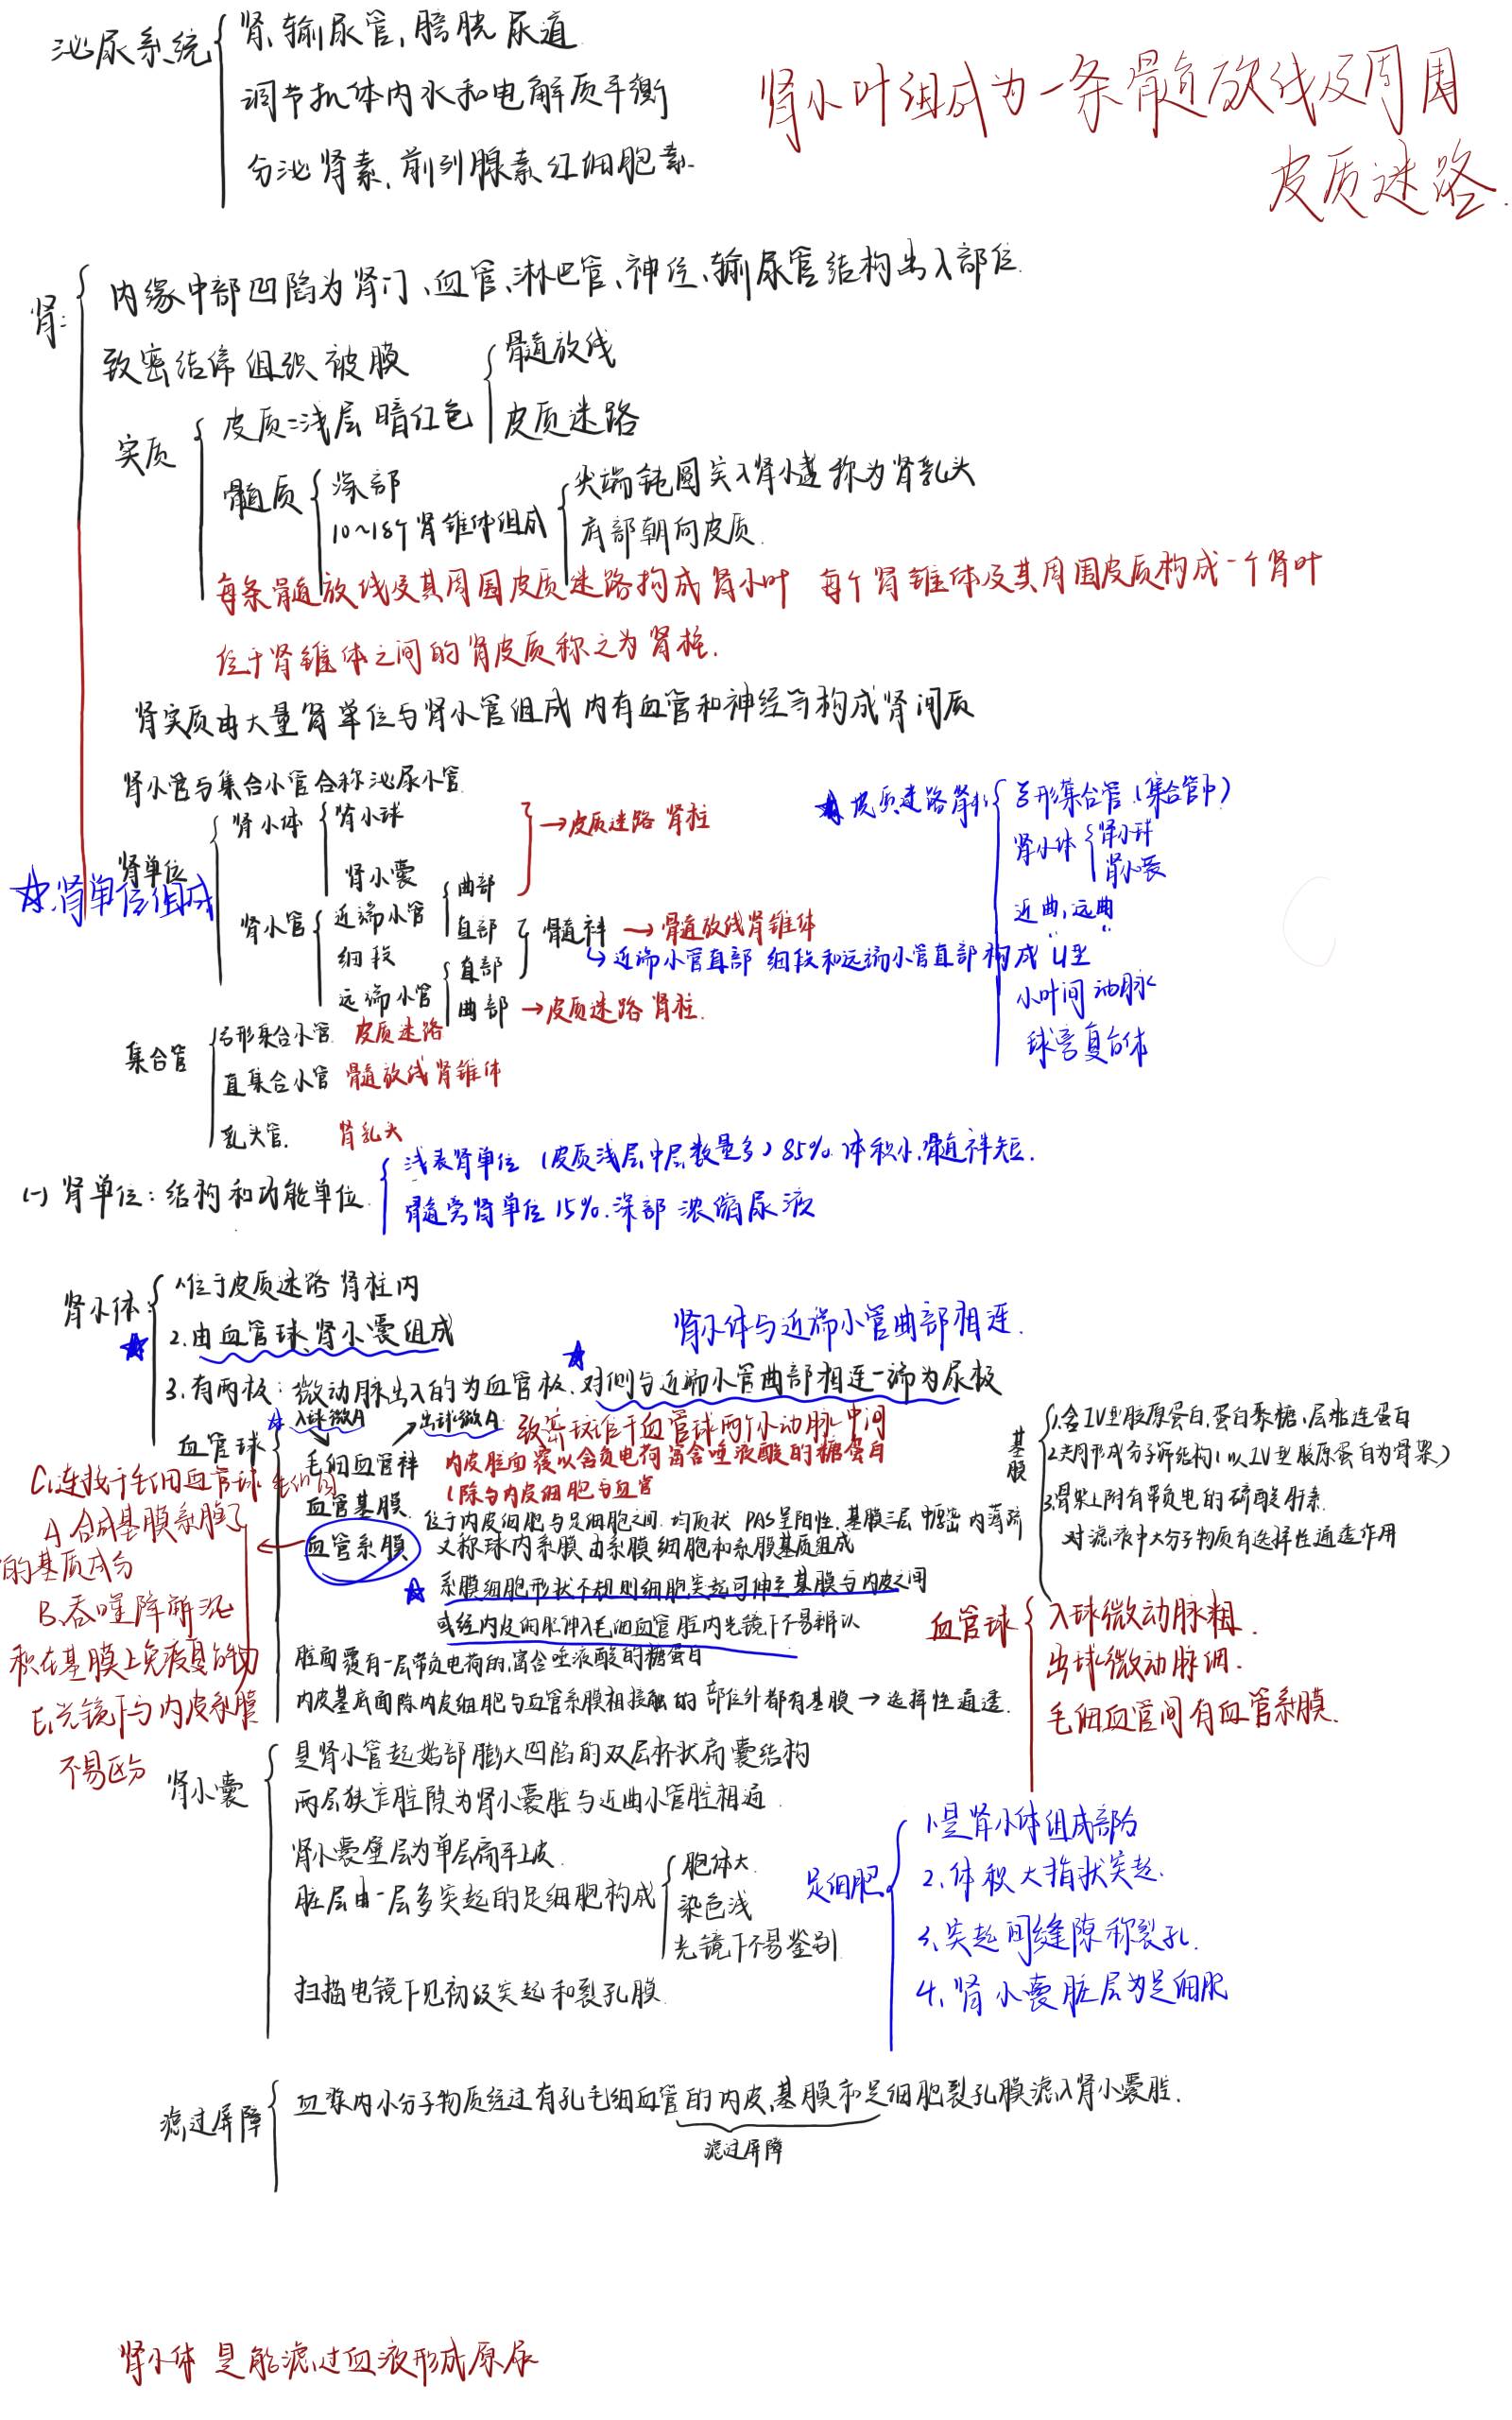 泌尿系统
肾、输尿管、膀胱 尿道
调节机体内水和电解质平衡
分泌肾素、前列腺素 红细胞素
肾小叶组成为一条髓放线及周围
皮质迷路.
肾:
内缘中部凹陷为肾门、血管、淋巴管、神经、输尿管结构出入部位.
致密结缔组织 被膜
实质
皮质=浅层 暗红色
髓放线
皮质迷路
髓质
深部
10~18个肾锥体组成
尖端钝圆突入肾小盏称为肾乳头
底部朝向皮质.
每条髓放线及其周围皮质迷路构成肾小叶 每个肾锥体及其周围皮质构成一个肾叶
位于肾锥体之间的肾皮质称之为肾柱.
肾实质由大量肾单位与肾小管组成 内有血管和神经等构成肾间质
肾小管与集合小管合称泌尿小管
肾单位
☆肾单位组成
肾小体
肾小球
肾小囊
→皮质迷路 肾柱
肾小管
近端小管
曲部
直部
细段
远端小管
直部
曲部
髓袢 →髓放线肾锥体
↳近端小管直部 细段和远端小管直部构成 U型
→皮质迷路 肾柱.
★皮质迷路肾柱
弓形集合管(集合管中)
肾小体
肾小球
肾小囊
近曲,远曲
小叶间动脉
球旁复合体
集合管
弓形集合小管 皮质迷路
直集合小管 髓放线 肾锥体
乳头管. 肾乳头
(一) 肾单位:结构和功能单位
浅表肾单位(皮质浅层中层数量多)85% 体积小.髓袢短.
髓旁肾单位 15%.深部 浓缩尿液
肾小体:
1.位于皮质迷路 肾柱内
2.由血管球、肾小囊组成
肾小体与近端小管曲部相连.
3.有两极:微动脉出入的为血管极.对侧与近端小管曲部相连一端为尿极
血管球
入球微A
出球微A
致密斑位于血管球两个小动脉中间
毛细血管袢
内皮腔面覆以含负电荷富含唾液酸的糖蛋白
(除与内皮细胞与血管
血管基膜
位于内皮细胞与足细胞之间.均质状 PAS呈阳性.基膜三层 中厚密 内薄疏
血管系膜
又称球内系膜 由系膜细胞和系膜基质组成
系膜细胞形状不规则细胞突起可伸至基膜与内皮之间
或经内皮细胞伸入毛细血管腔内光镜下不易辨认
腔面覆有一层带负电荷的,富含唾液酸的糖蛋白
内皮基底面除内皮细胞与血管系膜相接触的 部位外都有基膜→选择性通透.
C.连接于毛细血管球 毛细血管间
A.合成基膜系膜
的基质成分
B.吞噬降解沉
积在基膜上免疫复合物
E.光镜下与内皮系膜
不易区分
基膜
1.含IV型胶原蛋白,蛋白聚糖,层粘连蛋白
2.共同形成分子筛结构(以IV型胶原蛋白为骨架)
3.骨架上附有带负电的硫酸肝素
对滤液中大分子物质有选择性通透作用
血管球
入球微动脉粗.
出球微动脉细.
毛细血管间有血管系膜.
肾小囊
是肾小管起始部膨大凹陷的双层杯状盲囊结构
两层狭窄腔隙为肾小囊腔与近曲小管腔相通.
肾小囊壁层为单层扁平上皮.
脏层由一层多突起的足细胞构成
胞体大.
染色浅
光镜下不易鉴别
扫描电镜下见初级突起和裂孔膜.
足细胞
1.是肾小体组成部分
2.体积大指状突起.
3.突起间缝隙称裂孔.
4.肾小囊脏层为足细胞
滤过屏障
血浆内小分子物质经过有孔毛细血管的内皮,基膜和足细胞裂孔膜滤入肾小囊腔.
滤过屏障
肾小体 是能滤过血液形成原尿